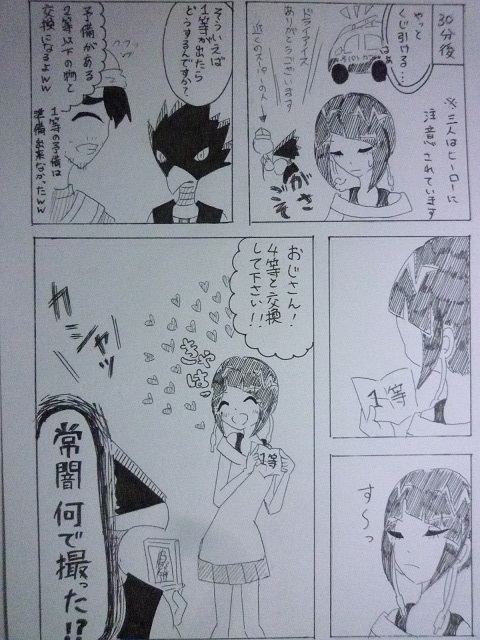 30分後
やっと
くじ引ける…
はぁ
※三人はヒーローに
注意されています
ドライアイス
ありがとうございます
近くのスーパーの人→
がさ
ごそ
そういえば
1等が出たら
どうするんですか？
ウフッ
予備がある
2等以下の物と
交換になるよww
1等の予備は
準備出来なかったww
1等
す〜っ
おじさん！
4等と交換
して下さい！！
きゃはっ
1等
カシャッ
常闇何で撮った!?